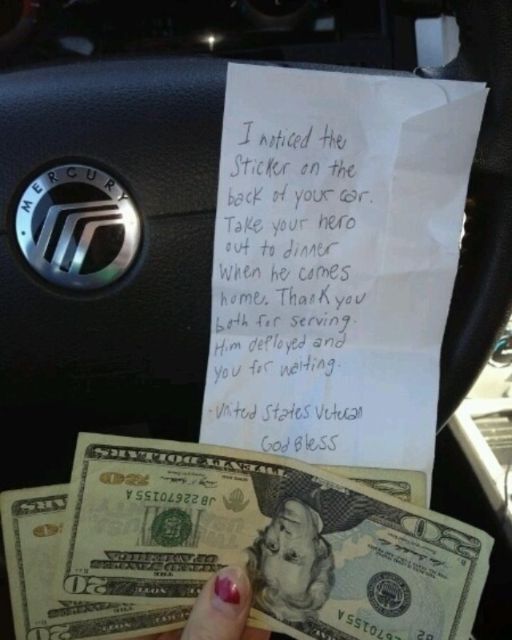 MERCURY
I noticed the
Sticker on the
back of your car.
Take your hero
out to dinner
When he comes
home. Thank you
both for serving.
Him deployed and
you for waiting.
-United States Veteran
God Bless
20
JB22670155A
20
JB22670155A
20
THE
20